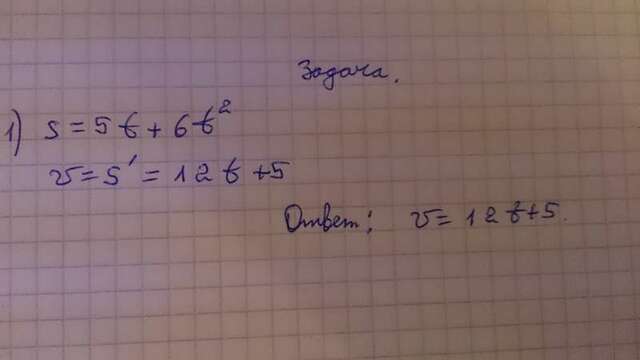 Задача.
1) s = 5t + 6t²
v = s' = 12t + 5
Ответ: v = 12t + 5.